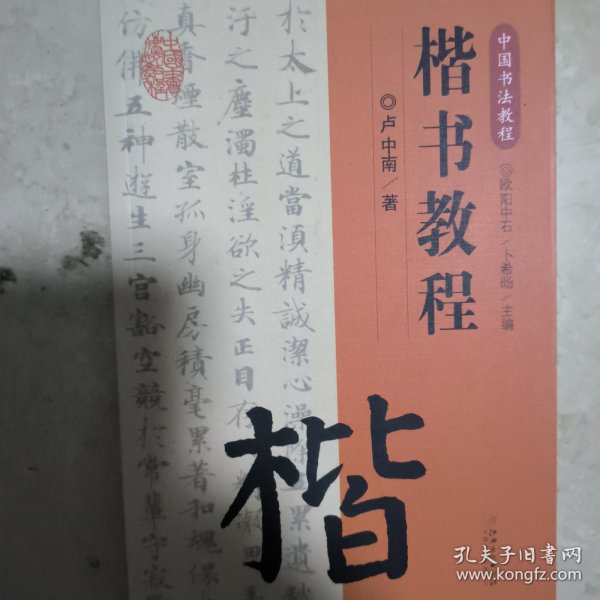 中国书法教程
◎欧阳中石/卜希旸/主编
楷书教程
◎卢中南/著
於太上之道當須精誠潔心澡除五累遺
汙之塵濁杜淫欲之失正目存
真香煙散室孤身幽房積毫累著和魂保
仿佛五神遊生三宫豁空競於常輩守寂
楷
孔夫子旧书网
www.kongfz.com